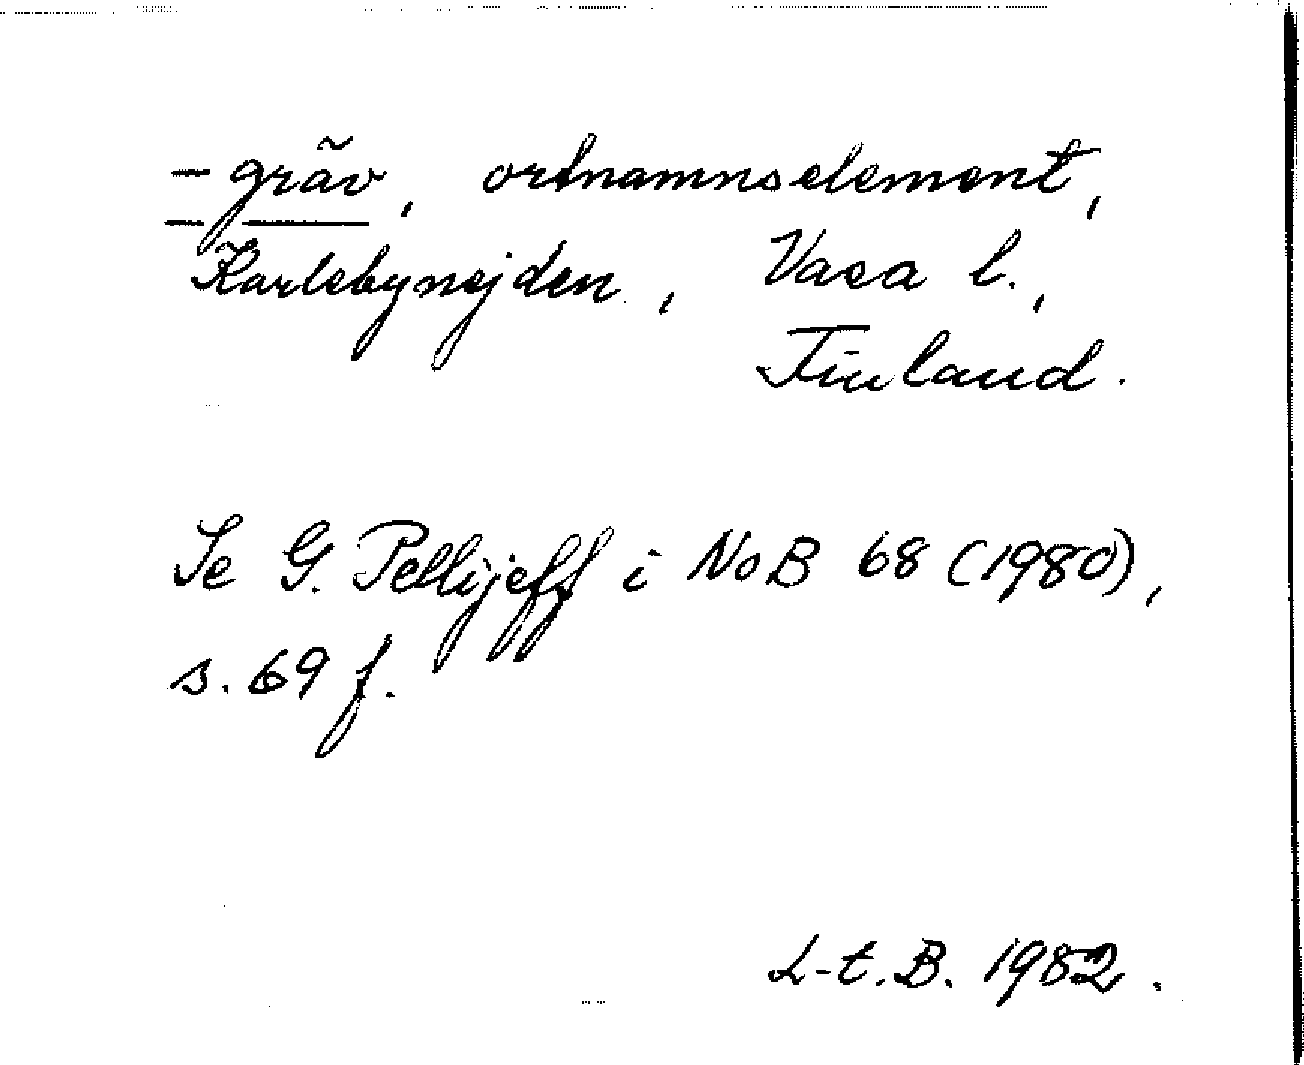 -gräv, ortnamnselement,
Karlebynejden, Vasa l.,
Finland.
Se G. Pellijeff i NoB 68 (1980),
s. 69 f.
L-t.B. 1982.